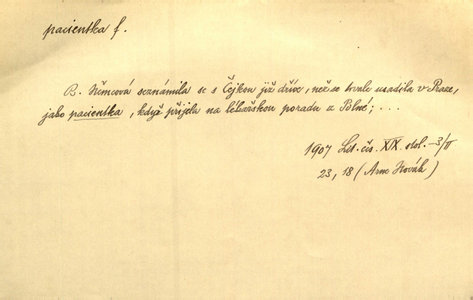 pacientka f.
B. Němcová seznámila se s Čejkou již dříve, než se trvale usadila v Praze,
jako pacientka, když přijela na lékařskou poradu z Polné; ...
1907 Lit. čes. XIX. stol. -3/II
23, 18 (Arne Novák)